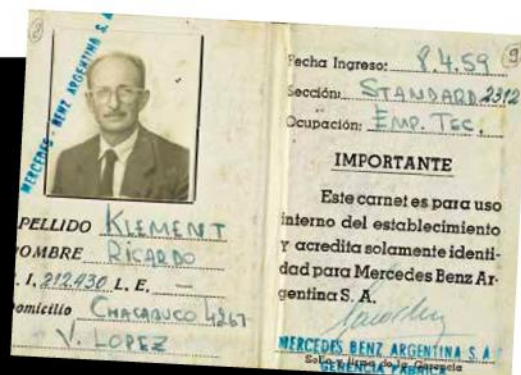 MERCEDES - BENZ ARGENTINA S. A.
PELLIDO KLEMENT
OMBRE RICARDO
. I. 212.430 L. E.
omicilio CHACABUCO 4261
V. LOPEZ
Fecha Ingreso: 8.4.59
Sección: STANDARD 2312
Ocupación: EMP. TEC.
IMPORTANTE
Este carnet es para uso
interno del establecimiento
y acredita solamente identi-
dad para Mercedes Benz Ar-
gentina S. A.
MERCEDES BENZ ARGENTINA S. A.
Sello y firma de la Gerencia
GERENCIA